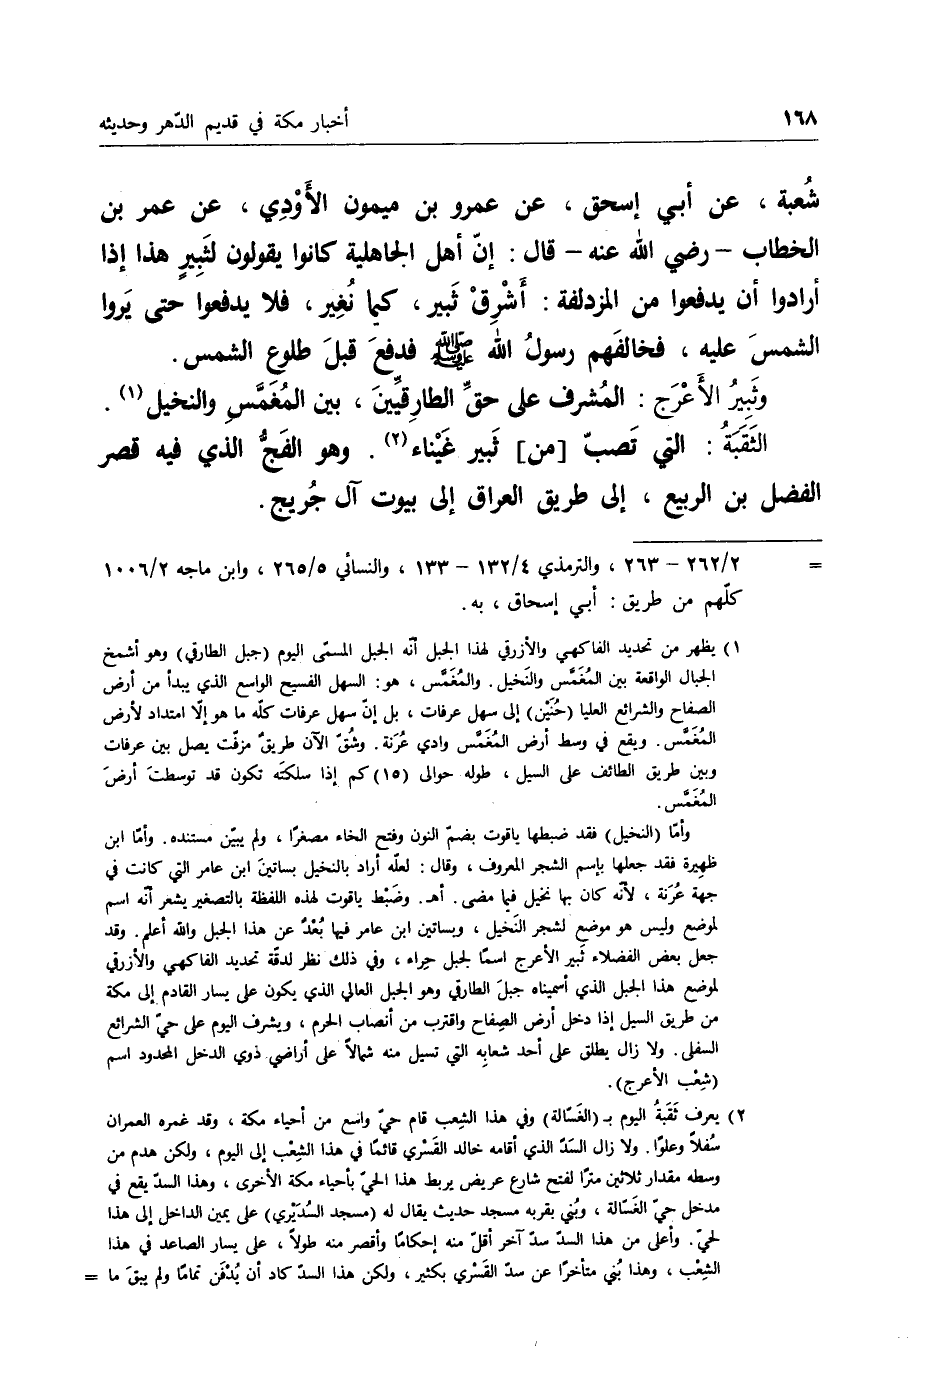 ١٦٨
أخبار مكة في قديم الدّهر وحديثه
شُعبة ، عن أبي إسحق ، عن عمرو بن ميمون الأَوْدِي ، عن عمر بن
الخطاب – رضي الله عنه – قال : إنّ أهل الجاهلية كانوا يقولون لثَبِيرٍ هذا إذا
أرادوا أن يدفعوا من المزدلفة : أَشْرِقْ ثَبير ، كيما نُغِير ، فلا يدفعوا حتى يَروا
الشمسَ عليه ، فخالفَهم رسولُ الله ﷺ فدفعَ قبلَ طلوع الشمس .
وثَبِيرُ الأَعْرَج : المُشرف على حقِّ الطارِقيِّينَ ، بين المُغَمَّسِ والنخيل(١) .
الثَقَبَةُ : التي تَصبّ [من] ثَبير غَيْناء(٢) . وهو الفَجُّ الذي فيه قصر
الفضل بن الربيع ، إلى طريق العراق إلى بيوت آل جُريج .
= ٢٦٢/٢ – ٢٦٣ ، والترمذي ١٣٢/٤ – ١٣٣ ، والنسائي ٢٦٥/٥ ، وابن ماجه ١٠٠٦/٢
كلّهم من طريق : أبي إسحاق ، به .
١) يظهر من تحديد الفاكهي والأزرقي لهذا الجبل أنّه الجبل المسمّى اليوم (جبل الطارقي) وهو أشمخ
الجبال الواقعة بين المُغَمَّس والنَخيل . والمُغَمَّس ، هو : السهل الفسيح الواسع الذي يبدأ من أرض
الصفاح والشرائع العليا (حُنَيْن) إلى سهل عرفات ، بل إنّ سهل عرفات كلّه ما هو إلّا امتداد لأرض
المُغَمَّس . ويقع في وسط أرض المُغَمَّس وادي عُرَنة . وشُقّ الآن طريقٌ مزفّت يصل بين عرفات
وبين طريق الطائف على السيل ، طوله حوالى (١٥) كم إذا سلكتَه تكون قد توسطتَ أرضَ
المُغَمَّس .
وأمّا (النخيل) فقد ضبطها ياقوت بضمّ النون وفتح الخاء مصغرًا ، ولم يبيّن مستنده . وأمّا ابن
ظهيرة فقد جعلها بإسم الشجر المعروف ، وقال : لعلّه أراد بالنخيل بساتينَ ابن عامر التي كانت في
جهة عُرَنة ، لأنّه كان بها نخيل فيما مضى . أهـ . وضَبْط ياقوت لهذه اللفظة بالتصغير يشعر أنّه اسم
لموضع وليس هو موضع لشجر النَخيل ، وبساتين ابن عامر فيها بُعْدٌ عن هذا الجبل والله أعلم . وقد
جعل بعض الفضلاء ثَبير الأعرج اسمًا لجبل حِراء ، وفي ذلك نظر لدقّة تحديد الفاكهي والأزرقي
لموضع هذا الجبل الذي أسميناه جبلَ الطارقي وهو الجبل العالي الذي يكون على يسار القادم إلى مكة
من طريق السيل إذا دخل أرض الصِفاح واقترب من أنصاب الحرم ، ويشرف اليوم على حيّ الشرائع
السفلى . ولا زال يطلق على أحد شعابِه التي تسيل منه شمالاً على أراضي ذوي الدخل المحدود اسم
(شِعْب الأعرج) .
٢) يعرف ثَقَبةُ اليوم بـ (الغَسّالة) وفي هذا الشِعب قام حيّ واسع من أحياء مكة ، وقد غمره العمران
سُفلاً وعلوًا . ولا زال السَدّ الذي أقامه خالد القَسْري قائمًا في هذا الشِعْب إلى اليوم ، ولكن هدم من
وسطه مقدار ثلاثين مترًا لفتح شارع عريض يربط هذا الحيّ بأحياء مكة الأخرى ، وهذا السدّ يقع في
مدخل حيّ الغَسّالة ، وبُني بقربه مسجد حديث يقال له (مسجد السُدَيْري) على يمين الداخل إلى هذا
لحيّ . وأعلى من هذا السدّ سدّ آخر أقلّ منه إحكامًا وأقصر منه طولاً ، على يسار الصاعد في هذا
الشِعْب ، وهذا بُني متأخرًا عن سدّ القَسْري بكثير ، ولكن هذا السدّ كاد أن يُدْفَن تمامًا ولم يبقَ ما =